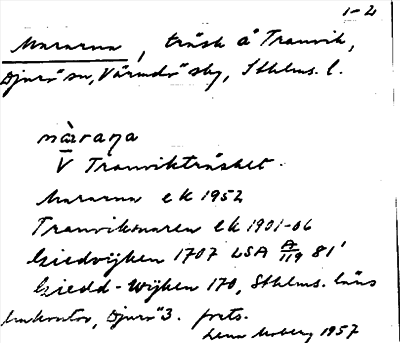 1-2
Mararna, träsk å Tranvik,
Djurö sn, Värmdö sky, Sthlms. l.
màraṇa
V Tranvikträsket.
Mararna ek 1952
Tranviksmaren ek 1901-06
Giedvijken 1707 LSA A/119 81'
Giedd-wijken 170, Sthlms. läns
lmkontor, Djurö 3. forts.
Lena Moberg 1957